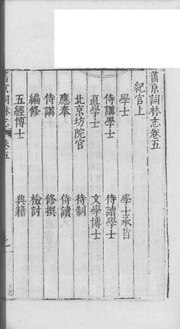 舊京詞林志卷五
紀官上
學士 學士承旨
侍講學士 侍讀學士
直學士 文學博士
北京坊院官 待制
應奉 侍讀
侍講 修撰
編修 檢討
五經博士 典籍